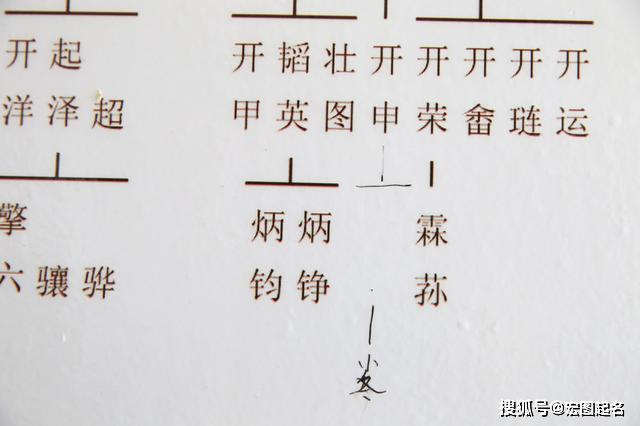 开 起 开 韬 壮 开 开 开 开 开
洋 泽 超 甲 英 图 申 荣 畬 琏 运
擎 炳 炳 霖
六 骧 骅 钧 铮 荪
搜狐号@宏图起名